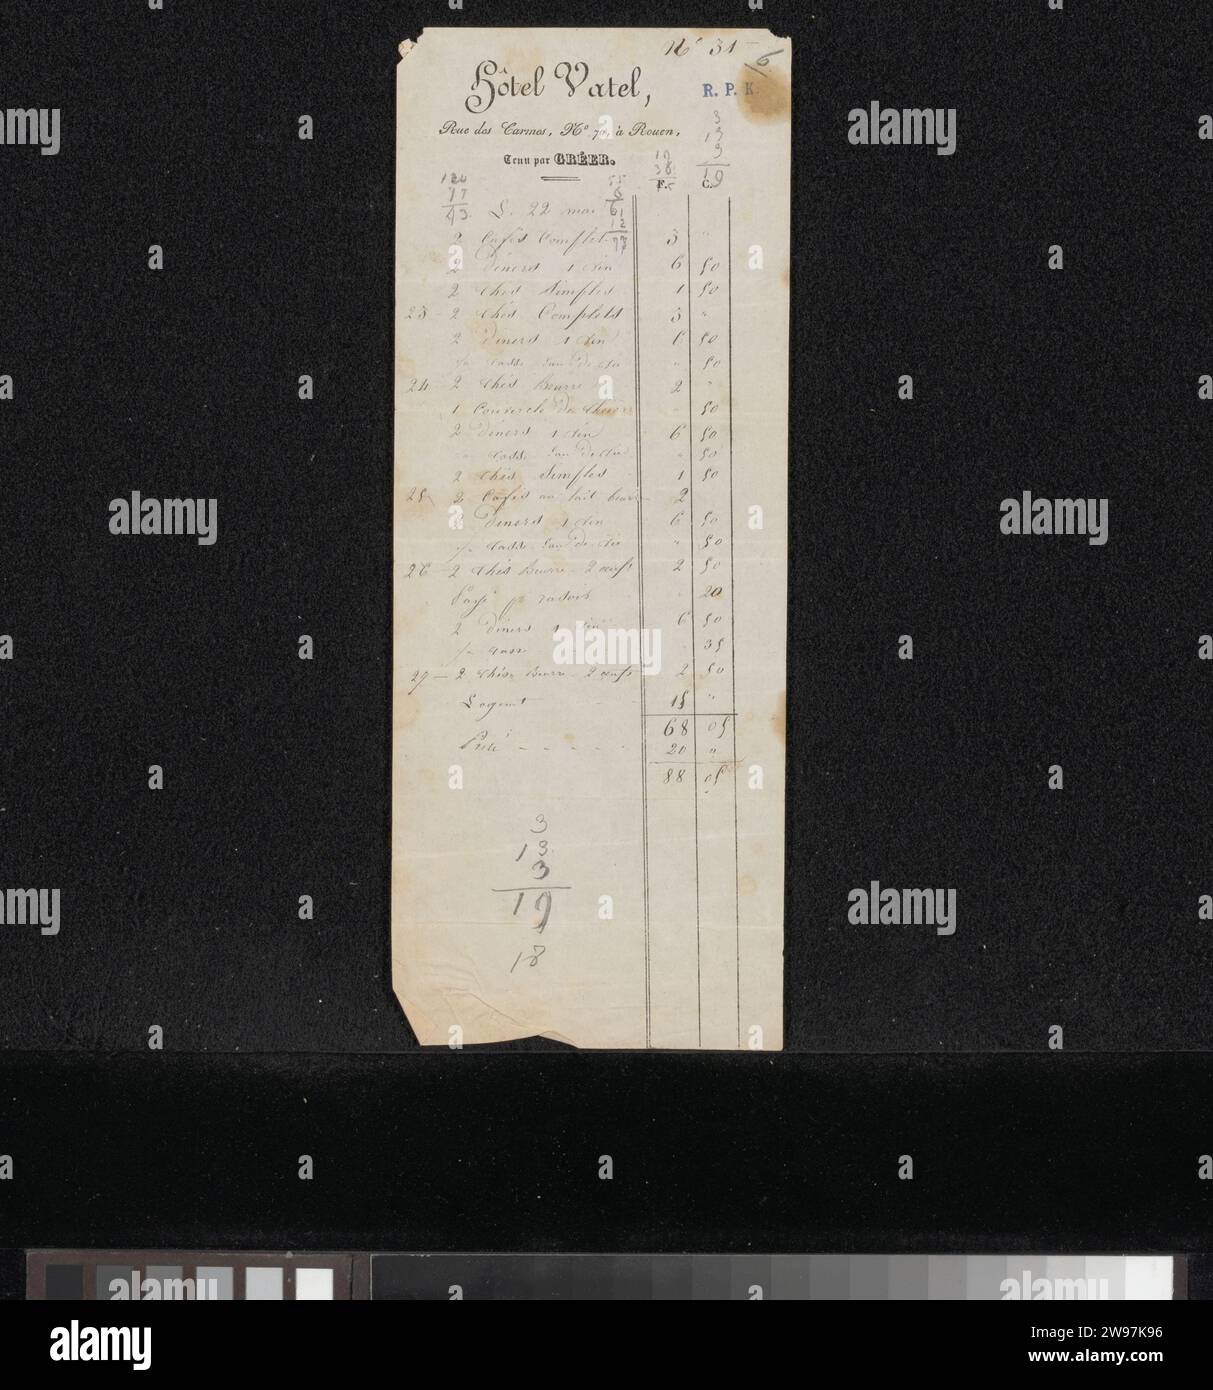 No 31
16
Hôtel Vatel,
R. P. K.
Rue des Carmes, No 70, à Rouen,
Tenu par GRÉER.
3
13
3
19
17
38
F. C.
120
77
43
55
6
61
12
73
L. 22 mai
2 Cafés Complets 3 "
2 diners 1 vin 6 50
2 thés Simples 1 50
23 - 2 thés Complets 3 "
2 diners 1 vin 6 50
" 50
24 - 2 thés Beurre 2 "
1 Couvercle de " 50
2 diners 1 vin 6 50
" 50
2 thés Simples 1 50
25 2 Cafés au lait beurre 2
2 diners 1 vin 6 50
" 50
26 - 2 thés Beurre - 2 œufs 2 50
Payé pr " 20
2 diners 1 vin 6 50
" 35
27 - 2 thés Beurre - 2 œufs 2 50
Logemt 15 "
68 05
Prêté - - - - - 20 "
88 05
3
13
3
19
18
alamy
alamy
alamy
alamy
alamy
alamy
alamy
alamy
Image ID: 2W97K96
www.alamy.com